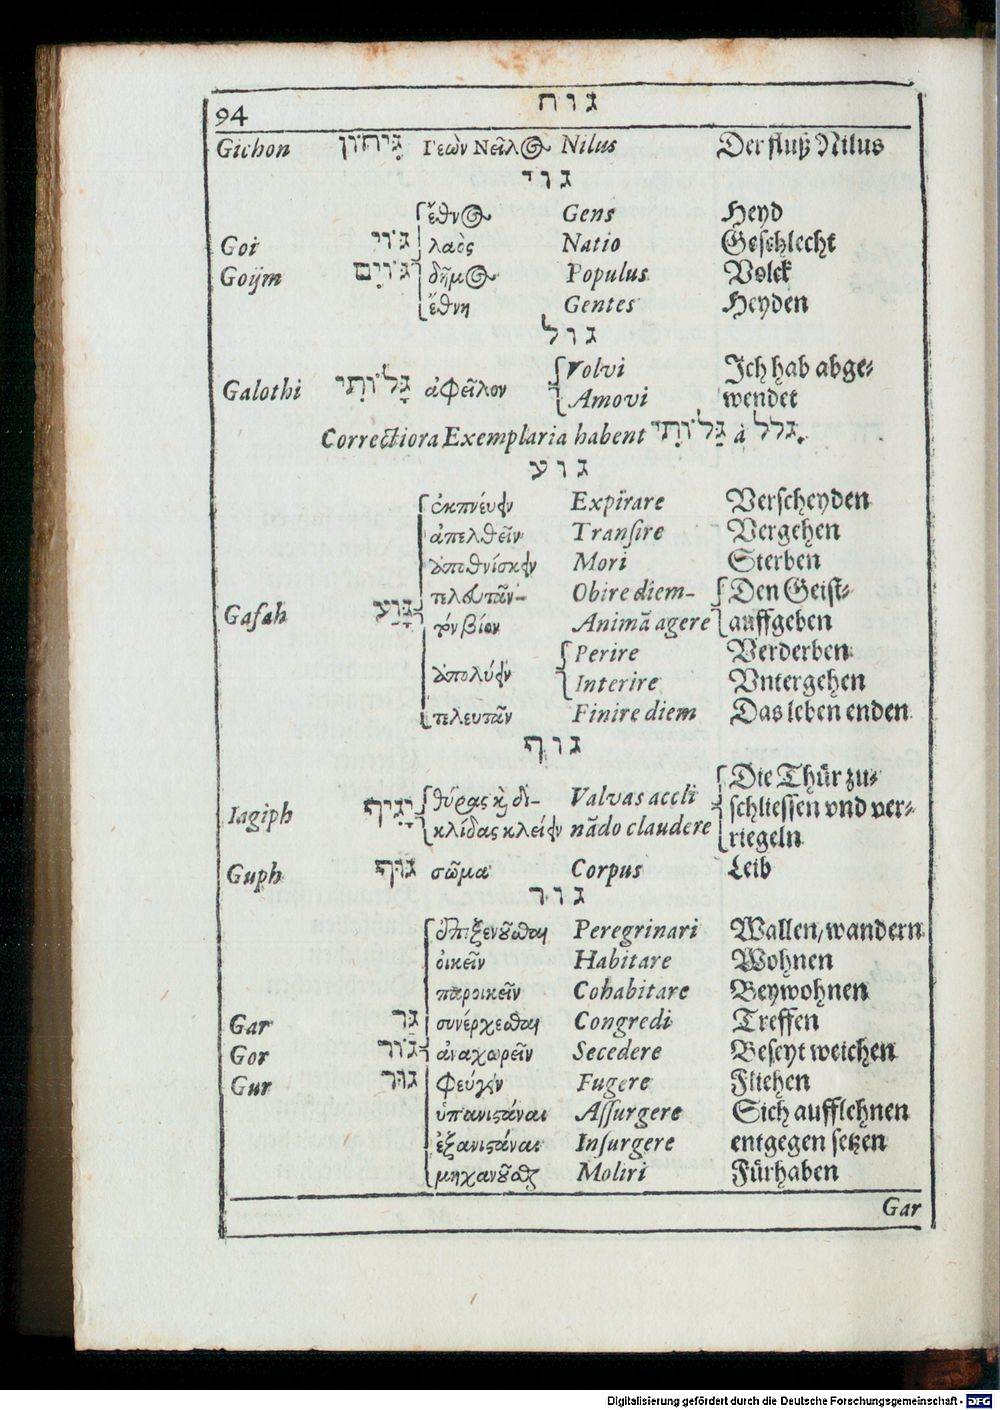 94 גוח
Gichon גִּיחוֹן Γεὼν Νεῖλος Nilus Der fluß Nilus
גוי
ἔθνος Gens Heyd
Goi גּוֹי λαὸς Natio Geschlecht
Goijm גּוֹיִם δῆμος Populus Volck
ἔθνη Gentes Heyden
גול
Volvi Jch hab abge-
Galothi גָּלוֹתִי ἀφεῖλον
Amovi wendet
Correctiora Exemplaria habent גַּלּוֹתִי à גלל.
גוע
ἐκπνέυειν Expirare Verscheyden
ἀπελθεῖν Transire Vergehen
ἀποθνίσκειν Mori Sterben
τελευτᾶν- Obire diem- Den Geist-
Gafah גָּוַע τὸν βίον Animã agere auffgeben
Perire Verderben
ἀπολύειν
Interire Vntergehen
πελευτᾶν Finire diem Das leben enden
גוף
Die Thür zu-
Iagiph יָגִיף θύρας καὶ δι- Valvas accli schliessen vnd ver-
κλίδας κλείειν nãdo claudere riegeln
Guph גּוּף σῶμα Corpus Leib
גור
ἐπιξενοῦσθαι Peregrinari Wallen/wandern
ὀικεῖν Habitare Wohnen
παροικεῖν Cohabitare Beywohnen
Gar גָּר συνέρχεσθαι Congredi Treffen
Gor גּוֹר ἀναχωρεῖν Secedere Beseyt weichen
Gur גּוּר φεύγειν Fugere Fliehen
ὑπανιστάναι Assurgere Sich aufflehnen
ἐξανιστάναι Insurgere entgegen setzen
μηχανοῦσθαι Moliri Fürhaben
Gar
Digitalisierung gefördert durch die Deutsche Forschungsgemeinschaft - DFG